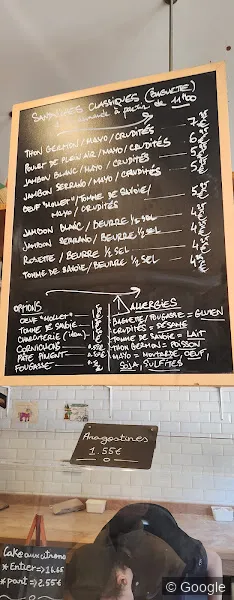 SANDWICHES CLASSIQUES (BAGUETTE)
commande à partir de 11h00
THON GERMON / MAYO / CRUDITÉS 7
POULET DE PLEIN AIR / MAYO / CRUDITÉS 6
JAMBON BLANC / MAYO / CRUDITÉS 5
JAMBON SERRANO / MAYO / CRUDITÉS
OEUF "MOLLET" / TOMME DE SAVOIE /
MAYO / CRUDITÉS
JAMBON BLANC / BEURRE ½ SEL
JAMBON SERRANO / BEURRE ½ SEL
ROSETTE / BEURRE ½ SEL
TOMME DE SAVOIE / BEURRE ½ SEL
OPTIONS
OEUF "MOLLET"
TOMME DE SAVOIE
CHARCUTERIE
CORNICHONS
PÂTE PIMENT
FOUGASSE
ALLERGIES
BAGUETTE / FOUGASSE = GLUTEN
CRUDITÉS = SÉSAME
TOMME DE SAVOIE = LAIT
THON GERMON = POISSON
MAYO = MOUTARDE, OEUF,
SOJA, SULFITES
Anagostines
1.55€
Cake au citron
*Entier => 16.6€
*part => 2.55€
© Google